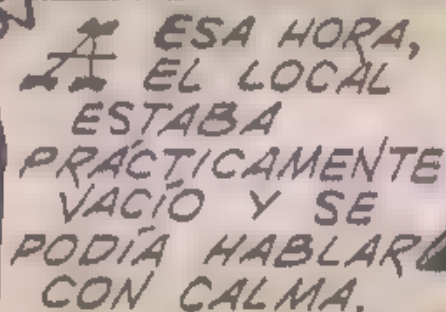 A ESA HORA,
EL LOCAL
ESTABA
PRÁCTICAMENTE
VACÍO Y SE
PODÍA HABLAR
CON CALMA.